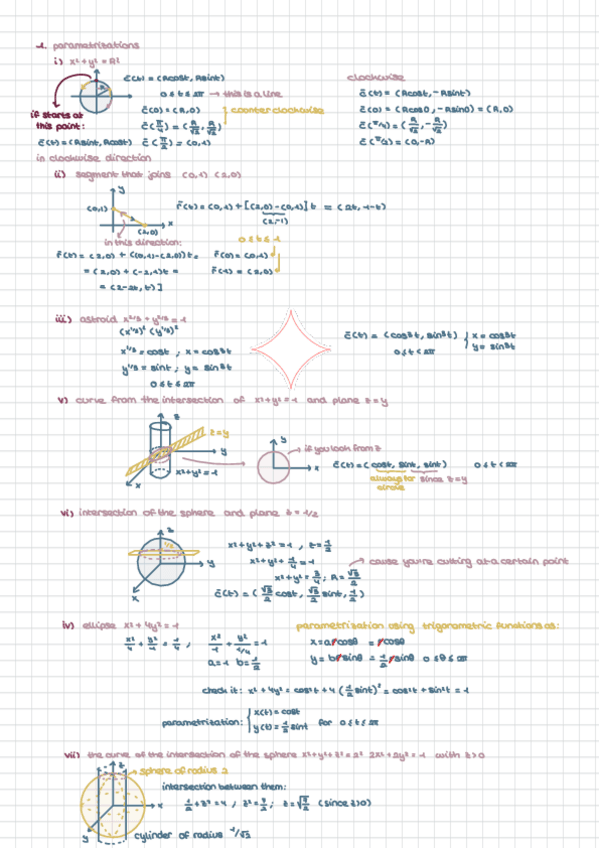 1. parametrizations
i) x²+y² = R²
c̄(t) = (Rcost, Rsint)
0 ≤ t ≤ 2π → this is a line
c̄(0) = (R,0)
c̄(π/4) = (R/√2, R/√2)
counterclockwise
c̄(π/2) = (0,1)
clockwise
c̄(t) = (Rcost, -Rsint)
c̄(0) = (Rcos0, -Rsin0) = (R,0)
c̄(π/4) = (R/√2, -R/√2)
c̄(π/2) = (0,-R)
if starts at
this point:
c̄(t) = (Rsint, Rcost)
in clockwise direction
(i) segment that joins (0,1) (2,0)
y
(0,1)
x
(2,0)
r̄(t) = (0,1) + [(2,0)-(0,1)] t = (2t, 1-t)
(2,-1)
in this direction:
r̄(t) = (2,0) + ((0,1)-(2,0)) t =
= (2,0) + (-2,1)t =
= (2-2t, t)]
0 ≤ t ≤ 1
r̄(0) = (0,1)
r̄(1) = (2,0)
iii) astroid x^2/3 + y^2/3 = 1
(x^1/3)² (y^1/3)²
x^1/3 = cost ; x = cos³t
y^1/3 = sint ; y = sin³t
0 ≤ t ≤ 2π
c̄(t) = (cos³t, sin³t) { x = cos³t
y = sin³t
0 ≤ t < 2π
v) curve from the intersection of x²+y²=1 and plane z=y
z
z=y
y
x²+y²=1
x
y
if you look from z
x
c̄(t) = (cost, sint, sint) 0 ≤ t < 2π
always for
circle
since z=y
vi) intersection of the sphere and plane z = 1/2
z
1/2
y
x
x²+y²+z² = 1 , z = 1/2
x²+y²+1/4 = 1
x²+y² = 3/4 ; R = √3/2
cause you're cutting at a certain point
c̄(t) = (√3/2 cost, √3/2 sint, 1/2)
iv) ellipse x² + 4y² = 1
x²/4 + y²/1 = 1/4 , x²/1 + y²/1/4 = 1
a=1 b=1/2
parametrization using trigonometric functions as:
x = arcosθ = rcosθ
y = brsinθ = 1/2 rsinθ 0 ≤ θ ≤ 2π
check it: x² + 4y² = cos²t + 4 (1/2 sint)² = cos²t + sin²t = 1
parametrization: { x(t) = cost
y(t) = 1/2 sint for 0 ≤ t ≤ 2π
vii) the curve of the intersection of the sphere x²+y²+z² = 2² 2x²+2y² = 1 with z>0
z
sphere of radius 2
x
y
intersection between them:
1/2 + z² = 4 , z² = 7/2 ; z = √7/2 (since z>0)
cylinder of radius 1/√2